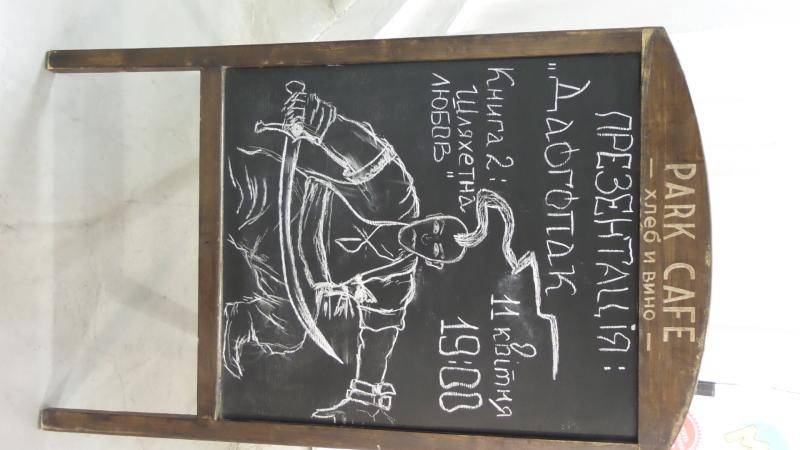 PARK CAFE
— хлеб и вино —
ПРЕЗЕНТАЦІЯ:
"ДАОГОПАК
Книга 2:
Шляхетна
ЛЮБОВ"
11 квітня
о
19:00